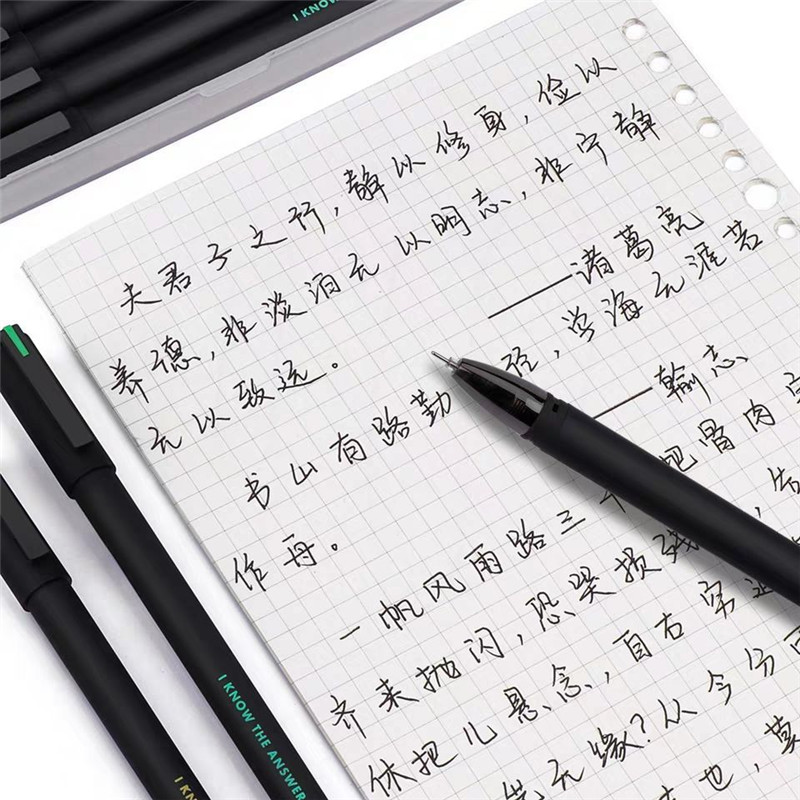 I KNOW
夫君子之行,静以修身,俭以
养德,非淡泊无以明志,非宁静
无以致远。 ——诸葛亮
书山有路勤 径,学海无涯苦
作舟。 志
一帆风雨路三 把骨肉
齐来抛闪,恐哭损残
休把儿悬念,自古穷
无缘?从今分
也,莫
I KNOW THE ANSWER
I KN